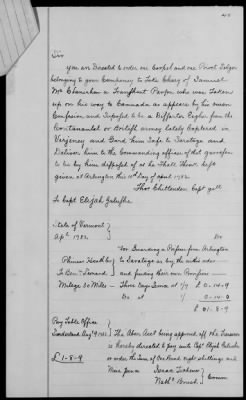 Sir
you are Directed to order one Corpol and one Privet Solger
belonging to your Commoney to Take Charg of Samuel
Mc Chanihan a Transhunt Parson who was Taken
up on his way to Cannada as appears by his owen
Confesion and Suposed to be a Difartor Eigher from the
Continanatal or British armey lately Captered in
Verginey and Gard him Safe to Saratoga and
Deliver him to the Commanding officer of that garrison
to be by him disposed of as he Shall Think best
given at Arlington this 10th Day of April 1782
Thos Chittenden Capt gell
To Capt Elijah Galusha
State of Vermont
Apl 1782.
Dr
for Guarding a Prisoner from Arlington
to Saratoga as by the within order
and finding their own Provision
Milage 30 Miles Three Days Time at 1/7 £ 0.14.9
Do at 0.14.0
£ 01.8.9
Pay Table Office
Sunderland Augt 9 1782 The Above Acct being approved off the Treasurer
is hereby directed to pay unto Capt Elijah Galusha
or order the Sum of One Pound eight shillings and
£1-8-9
Nine pence Isaac Tichenor
Nathl Brush Comm